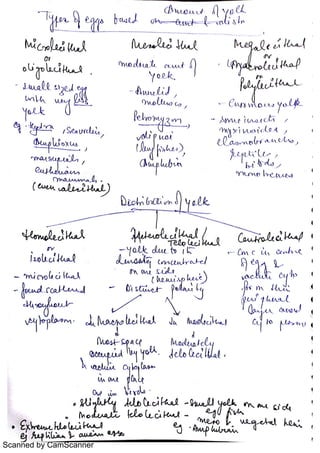 Amount of yolk
Types of eggs based on amt & distn
Microlecithal
or
oligolecithal
- small sized egg
with very less
yolk
eg - Hydra, Seaurchin,
Amphioxus,
marsupials,
eutherian
mammals.
(even alecithal)
Mesolecithal
moderate amt of
yolk.
- Annelid,
molluscs,
Petromyzon,
dipnoi
(lungfishes),
Amphibia
Megalecithal
or
Macrolecithal
or
Polylecithal
- Enormous yolk
- some insects,
myxinoides,
elasmobranchs,
Reptiles,
birds,
monotremes
Distribution of yolk
Homolecithal
or
Isolecithal
- microlecithal
- found scattered
throughout
cytoplasm.
Heterolecithal
Telolecithal
- yolk due to its
density concentrated
on one side
(hemisphere)
- Distinct polarity
In Macrolecithal
Most space
occupied by yolk.
A active cytoplasm
in one place
as in birds
In mesolecithal
Moderately
telolecithal.
Centrolecithal
- Conc in centre
of egg &
active cyto
for m thin
peripheral
layer around
cytoplasm
• Slightly telolecithal - small yolk on one side
eg fish
• Moderate telolecithal - more in vegetal hemi
eg Amphibian
• Extreme telolecithal
eg reptilian & avian eggs
Scanned by CamScanner